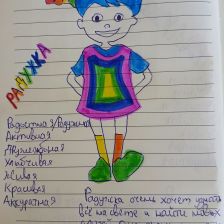 РАДУЖКА
Активная
Дружелюбная
Улыбчивая
Живая
Красивая
Аккуратная
Радужка очень хочет узнать
всё на свете и найти